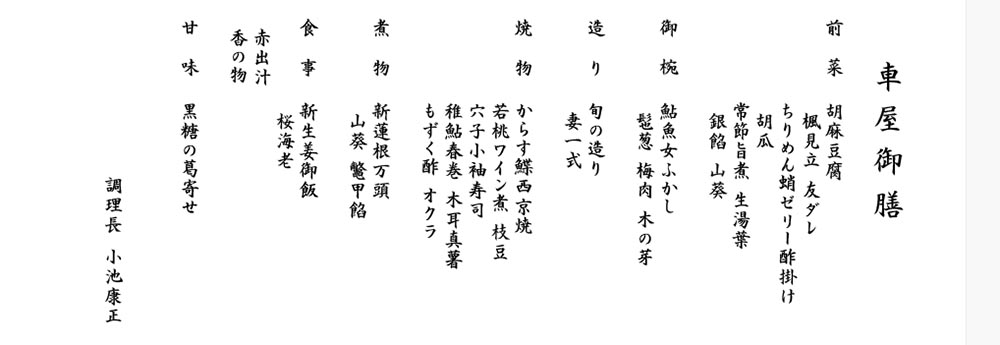 車屋御膳
前菜 胡麻豆腐
楓見立 友ダレ
ちりめん蛸ゼリー酢掛け
胡瓜
常節旨煮 生湯葉
銀餡 山葵
御椀 鮎魚女ふかし
髢葱 梅肉 木の芽
造り 旬の造り
妻一式
焼物 からす鰈西京焼
若桃ワイン煮 枝豆
穴子小袖寿司
稚鮎春巻 木耳真薯
もずく酢 オクラ
煮物 新蓮根万頭
山葵 鼈甲餡
食事 新生姜御飯
桜海老
赤出汁
香の物
甘味 黒糖の葛寄せ
調理長 小池康正